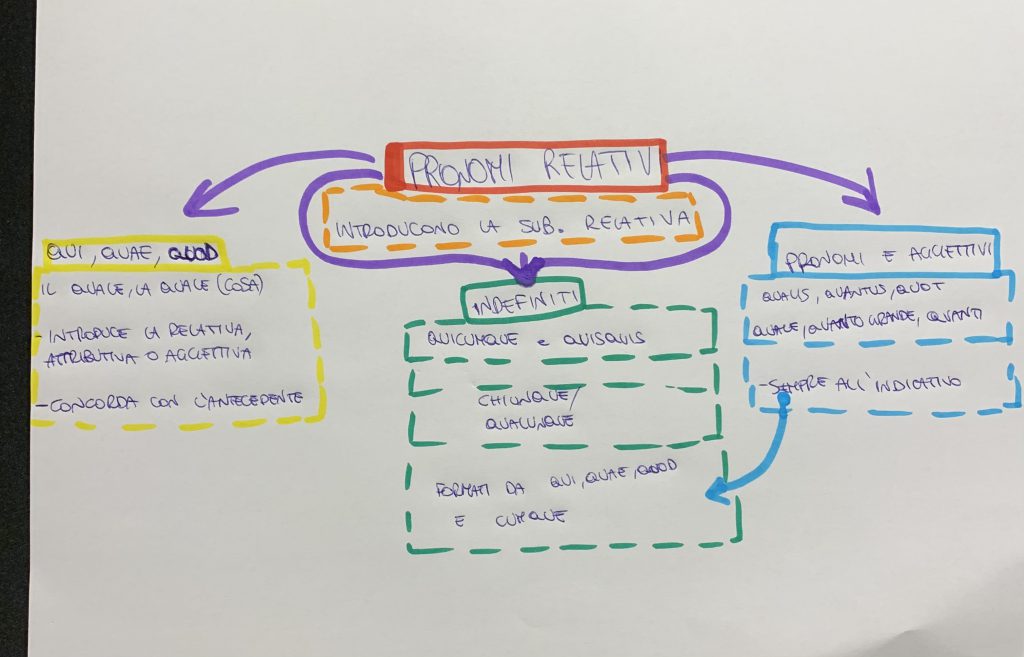 PRONOMI RELATIVI
INTRODUCONO LA SUB. RELATIVA
QUI, QUAE, QUOD
IL QUALE, LA QUALE (COSA)
- INTRODUCE LA RELATIVA,
ATTRIBUTIVA O AGGETTIVA
- CONCORDA CON L'ANTECEDENTE
INDEFINITI
QUICUMQUE e QUISQUIS
CHIUNQUE/
QUALUNQUE
FORMATI DA QUI, QUAE, QUOD
E CUMQUE
PRONOMI E AGGETTIVI
QUALIS, QUANTUS, QUOT
QUALE, QUANTO GRANDE, QUANTI
- SEMPRE ALL'INDICATIVO